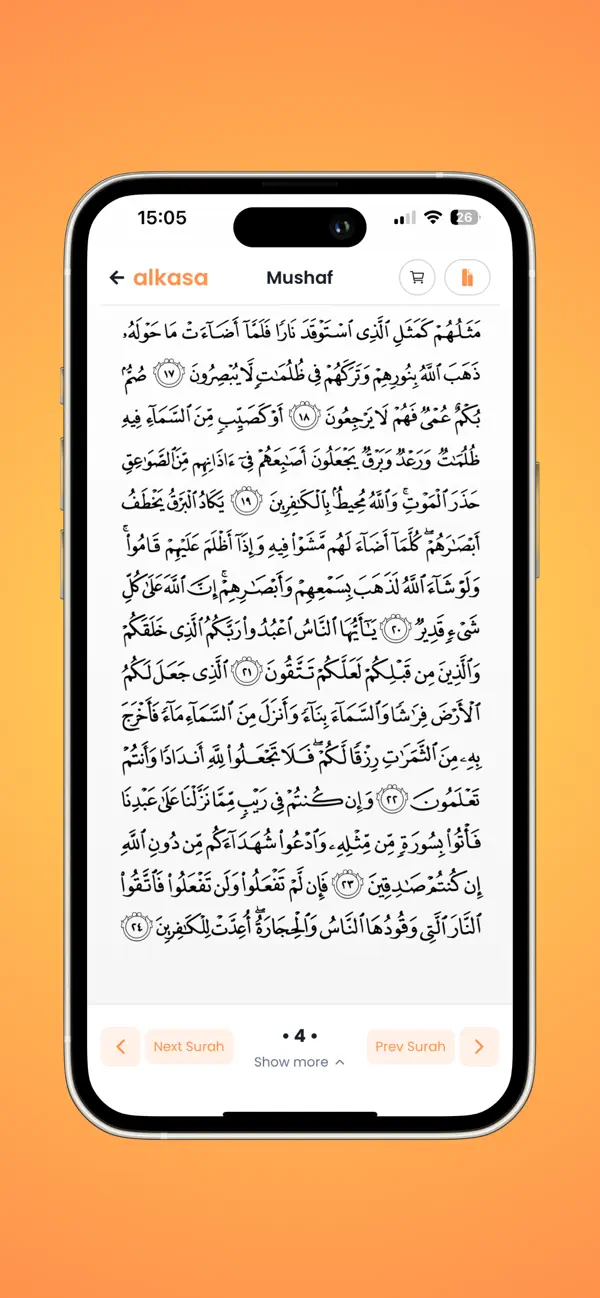 15:05
26
alkasa
Mushaf
مَثَلُهُمْ كَمَثَلِ ٱلَّذِى ٱسْتَوْقَدَ نَارًا فَلَمَّآ أَضَآءَتْ مَا حَوْلَهُۥ
ذَهَبَ ٱللَّهُ بِنُورِهِمْ وَتَرَكَهُمْ فِى ظُلُمَٰتٍ لَّا يُبْصِرُونَ ١٧ صُمٌّۢ
بُكْمٌ عُمْىٌ فَهُمْ لَا يَرْجِعُونَ ١٨ أَوْ كَصَيِّبٍ مِّنَ ٱلسَّمَآءِ فِيهِ
ظُلُمَٰتٌ وَرَعْدٌ وَبَرْقٌ يَجْعَلُونَ أَصَٰبِعَهُمْ فِىٓ ءَاذَانِهِم مِّنَ ٱلصَّوَٰعِقِ
حَذَرَ ٱلْمَوْتِ ۚ وَٱللَّهُ مُحِيطٌۢ بِٱلْكَٰفِرِينَ ١٩ يَكَادُ ٱلْبَرْقُ يَخْطَفُ
أَبْصَٰرَهُمْ ۖ كُلَّمَآ أَضَآءَ لَهُم مَّشَوْا۟ فِيهِ وَإِذَآ أَظْلَمَ عَلَيْهِمْ قَامُوا۟ ۚ
وَلَوْ شَآءَ ٱللَّهُ لَذَهَبَ بِسَمْعِهِمْ وَأَبْصَٰرِهِمْ ۚ إِنَّ ٱللَّهَ عَلَىٰ كُلِّ
شَىْءٍ قَدِيرٌ ٢٠ يَٰٓأَيُّهَا ٱلنَّاسُ ٱعْبُدُوا۟ رَبَّكُمُ ٱلَّذِى خَلَقَكُمْ
وَٱلَّذِينَ مِن قَبْلِكُمْ لَعَلَّكُمْ تَتَّقُونَ ٢١ ٱلَّذِى جَعَلَ لَكُمُ
ٱلْأَرْضَ فِرَٰشًا وَٱلسَّمَآءَ بِنَآءً وَأَنزَلَ مِنَ ٱلسَّمَآءِ مَآءً فَأَخْرَجَ
بِهِۦ مِنَ ٱلثَّمَرَٰتِ رِزْقًا لَّكُمْ ۖ فَلَا تَجْعَلُوا۟ لِلَّهِ أَندَادًا وَأَنتُمْ
تَعْلَمُونَ ٢٢ وَإِن كُنتُمْ فِى رَيْبٍ مِّمَّا نَزَّلْنَا عَلَىٰ عَبْدِنَا
فَأْتُوا۟ بِسُورَةٍ مِّن مِّثْلِهِۦ وَٱدْعُوا۟ شُهَدَآءَكُم مِّن دُونِ ٱللَّهِ
إِن كُنتُمْ صَٰدِقِينَ ٢٣ فَإِن لَّمْ تَفْعَلُوا۟ وَلَن تَفْعَلُوا۟ فَٱتَّقُوا۟
ٱلنَّارَ ٱلَّتِى وَقُودُهَا ٱلنَّاسُ وَٱلْحِجَارَةُ ۖ أُعِدَّتْ لِلْكَٰفِرِينَ ٢٤
Next Surah
• 4 •
Prev Surah
Show more